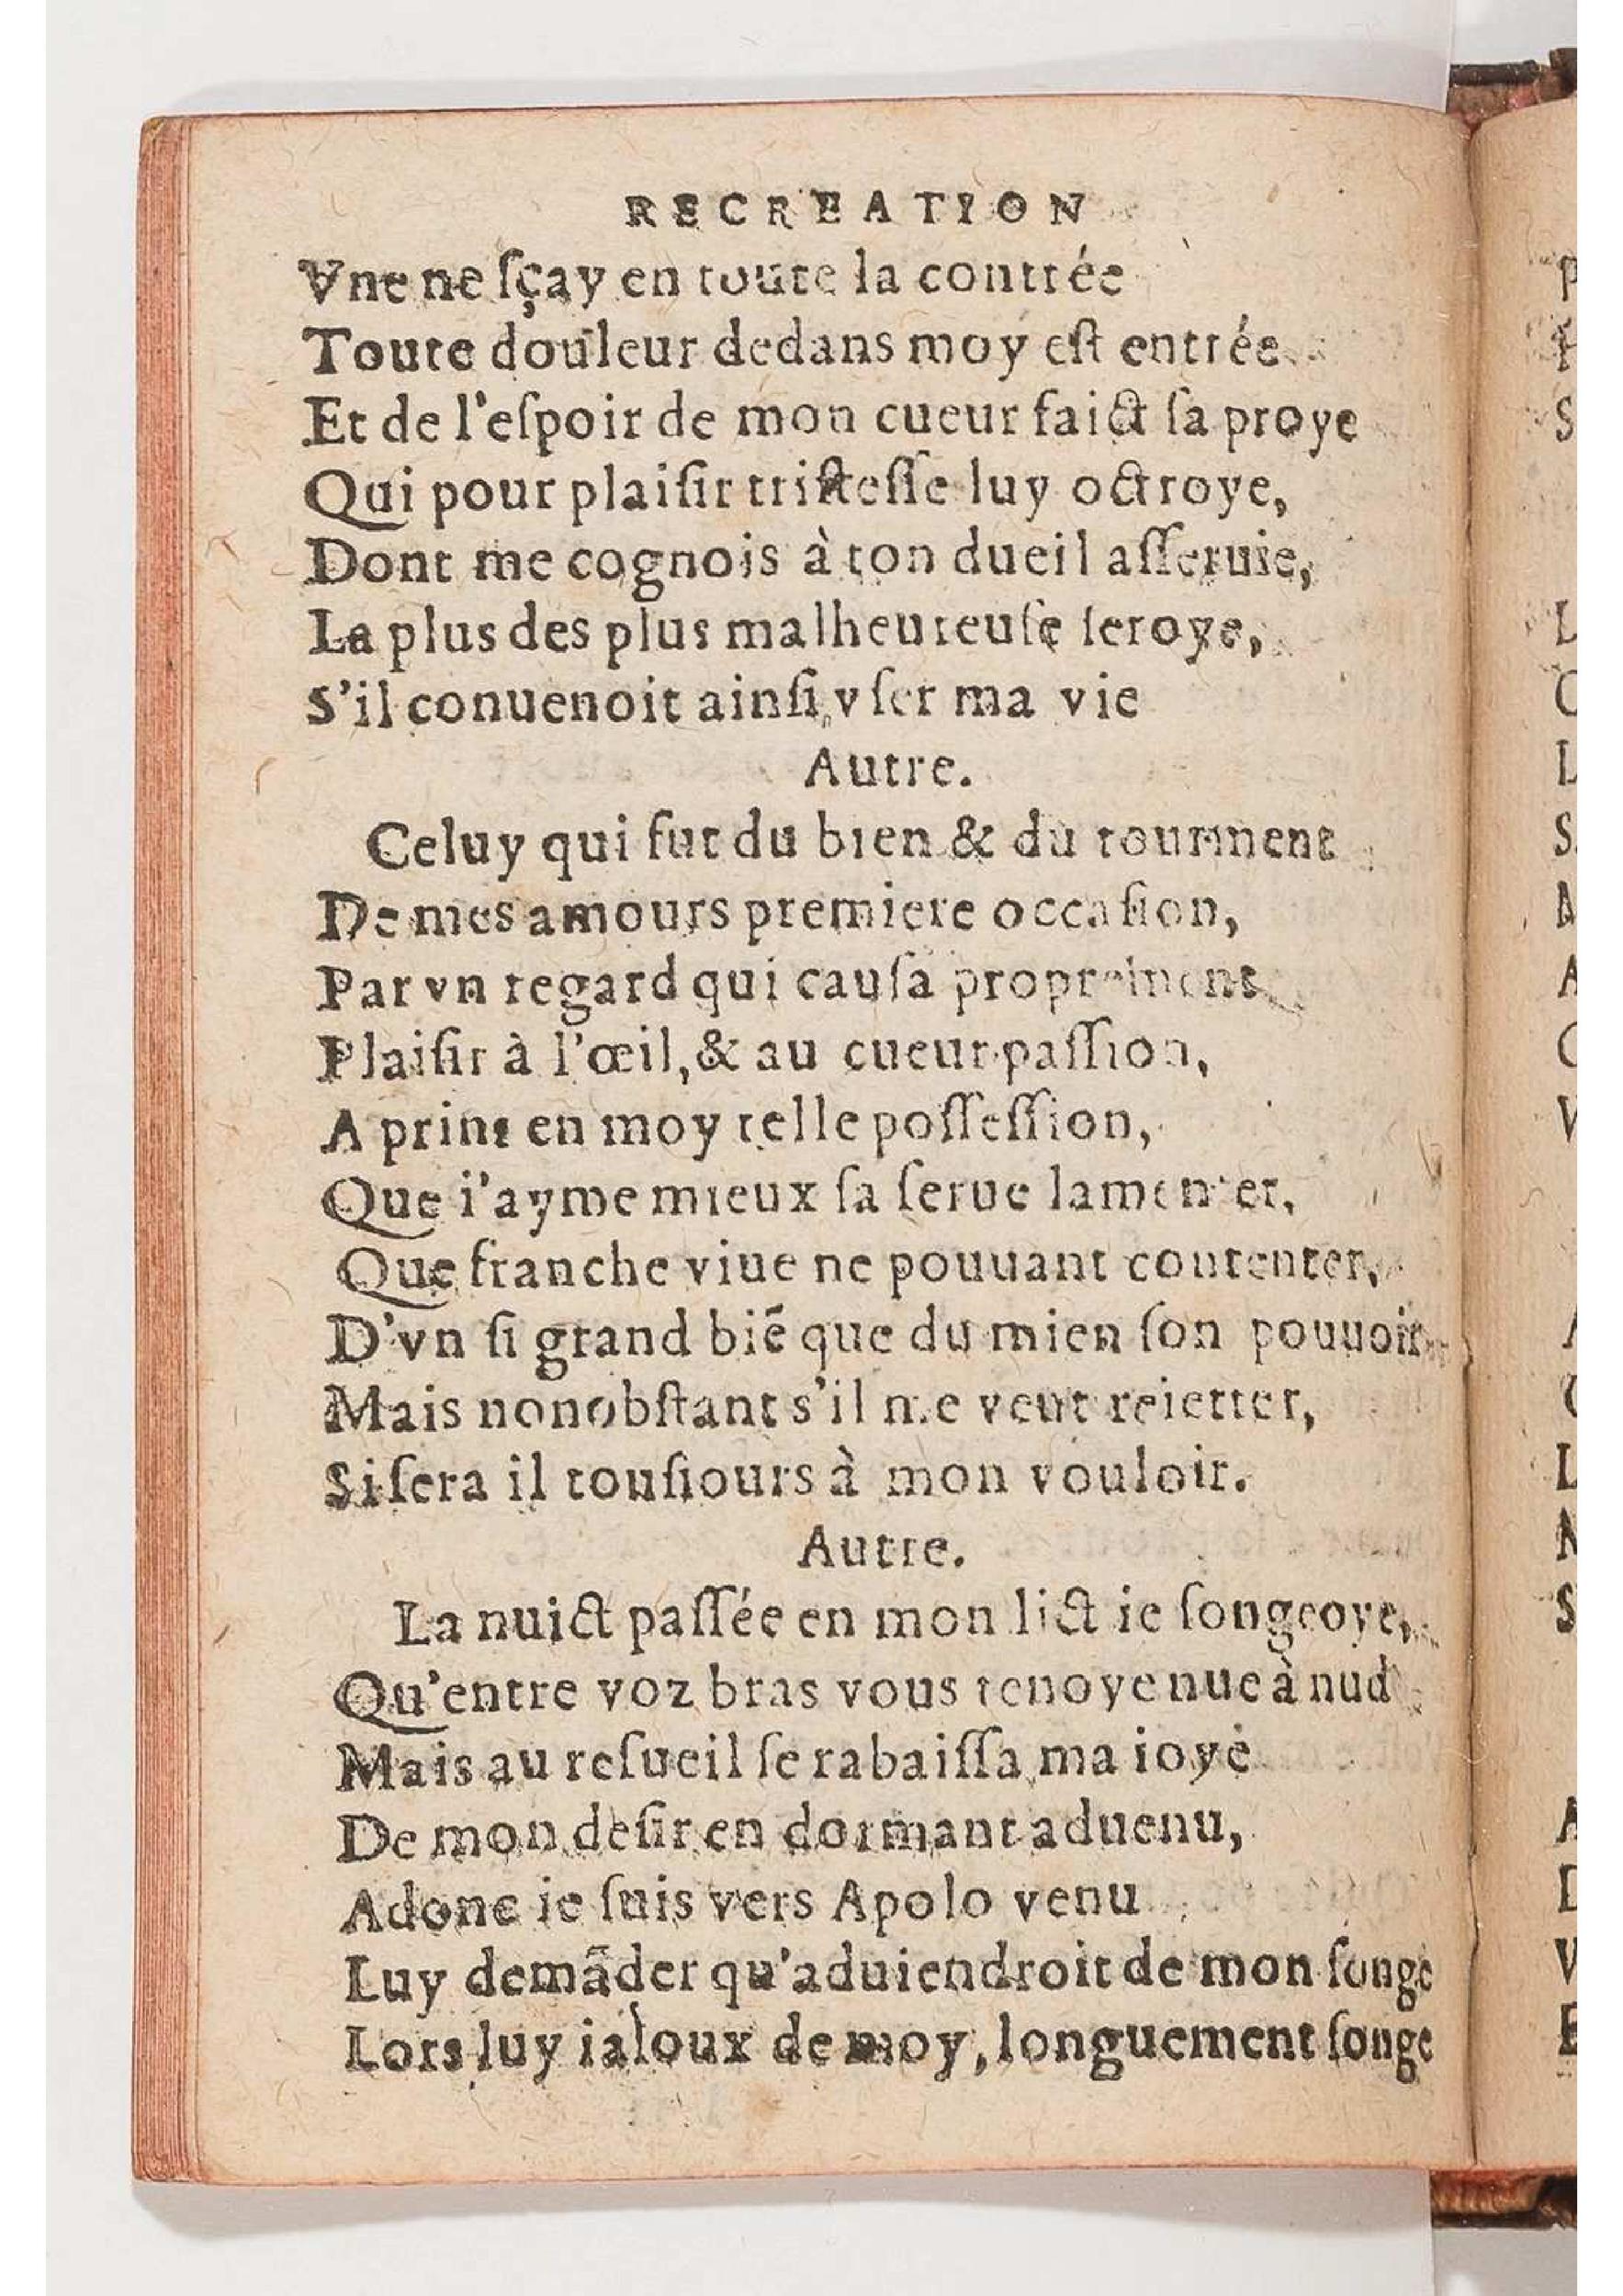 RECREATION
Vne ne ſçay en toute la contrée
Toute douleur dedans moy eſt entrée
Et de l'eſpoir de mon cueur faict ſa proye
Qui pour plaiſir triſteſſe luy octroye,
Dont me cognois à ton dueil aſſeruie,
La plus des plus malheureuſe ſeroye,
S'il conuenoit ainſi vſer ma vie
Autre.
Celuy qui fut du bien & du tourment
De mes amours premiere occaſion,
Par vn regard qui cauſa proprement
Plaiſir à l'œil, & au cueur paſſion,
A prins en moy telle poſſeſſion,
Que i'ayme mieux ſa ſerue lamenter,
Que franche viue ne pouuant contenter,
D'vn ſi grand biẽ que du mien ſon pouuoir
Mais nonobſtant s'il me veut reietter,
Si ſera il touſiours à mon vouloir.
Autre.
La nuict paſſée en mon lict ie ſongeoye,
Qu'entre voz bras vous tenoye nue à nud
Mais au reſueil ſe rabaiſſa ma ioye
De mon deſir en dormant aduenu,
Adonc ie ſuis vers Apolo venu
Luy demãder qu'aduiendroit de mon ſonge
Lors luy ialoux de moy, longuement ſonge